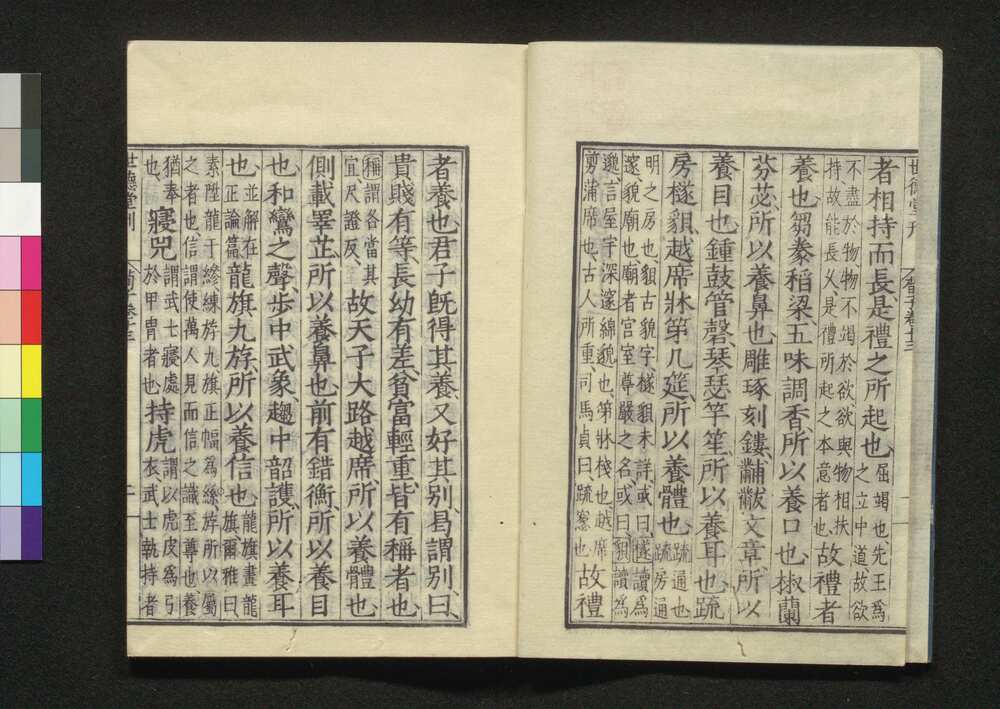 世德堂刊 荀子卷十三
者相持而長是禮之所起也屈竭也先王為
之立中道故欲
不盡於物物不竭於欲欲與物相扶
持故能長久是禮所起之本意者也故禮者
養也芻豢稻梁五味調香所以養口也椒蘭
芬苾所以養鼻也雕琢刻鏤黼黻文章所以
養目也鍾鼓管磬琴瑟竽笙所以養耳也疏
房檖貌越席牀笫几筵所以養體也疏通也
疏房通
明之房也貌古貌字檖貌未詳或曰檖讀為
邃貌廟也廟者宮室尊嚴之名或曰貌讀為
邈言屋宇深邃綿邈也笫牀棧也越席
剪蒲席也古人所重司馬貞曰疏窻也故禮
者養也君子旣得其養又好其別曷謂別曰
貴賤有等長幼有差貧富輕重皆有稱者也
稱謂各當其
宜尺證反故天子大路越席所以養體也
側載睪芷所以養鼻也前有錯衡所以養目
也和鸞之聲步中武象趨中韶護所以養耳
也並解在
正論篇龍旗九斿所以養信也龍旗畫龍
旗爾雅曰
素陞龍于縿練旂九旗正幅為縿斿所以屬
之者也信謂使萬人見而信之識至尊也養
猶奉
也寢兕謂武士寢處
於甲冑者也持虎謂以虎皮為弓
衣武士執持者
世德堂刊 荀子卷十三 二